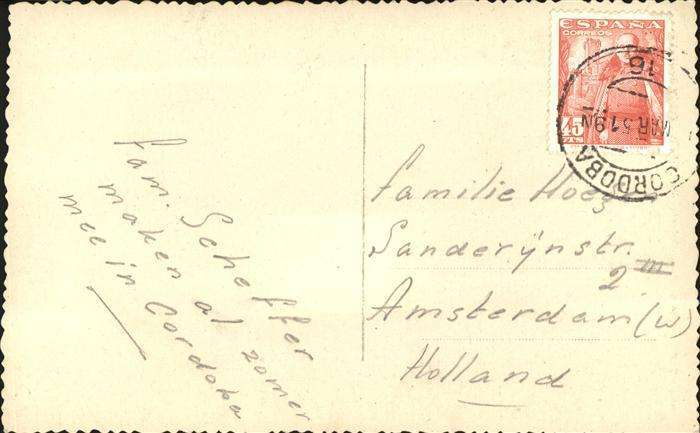 Fam. Scheffer
maken al zomer
mee in Cordoba
ESPAÑA
CORREOS
45
PTS
CORDOBA
16 MAR 51 9N
Familie
Sanderijnstr.
2 III
Amsterdam (W)
Holland